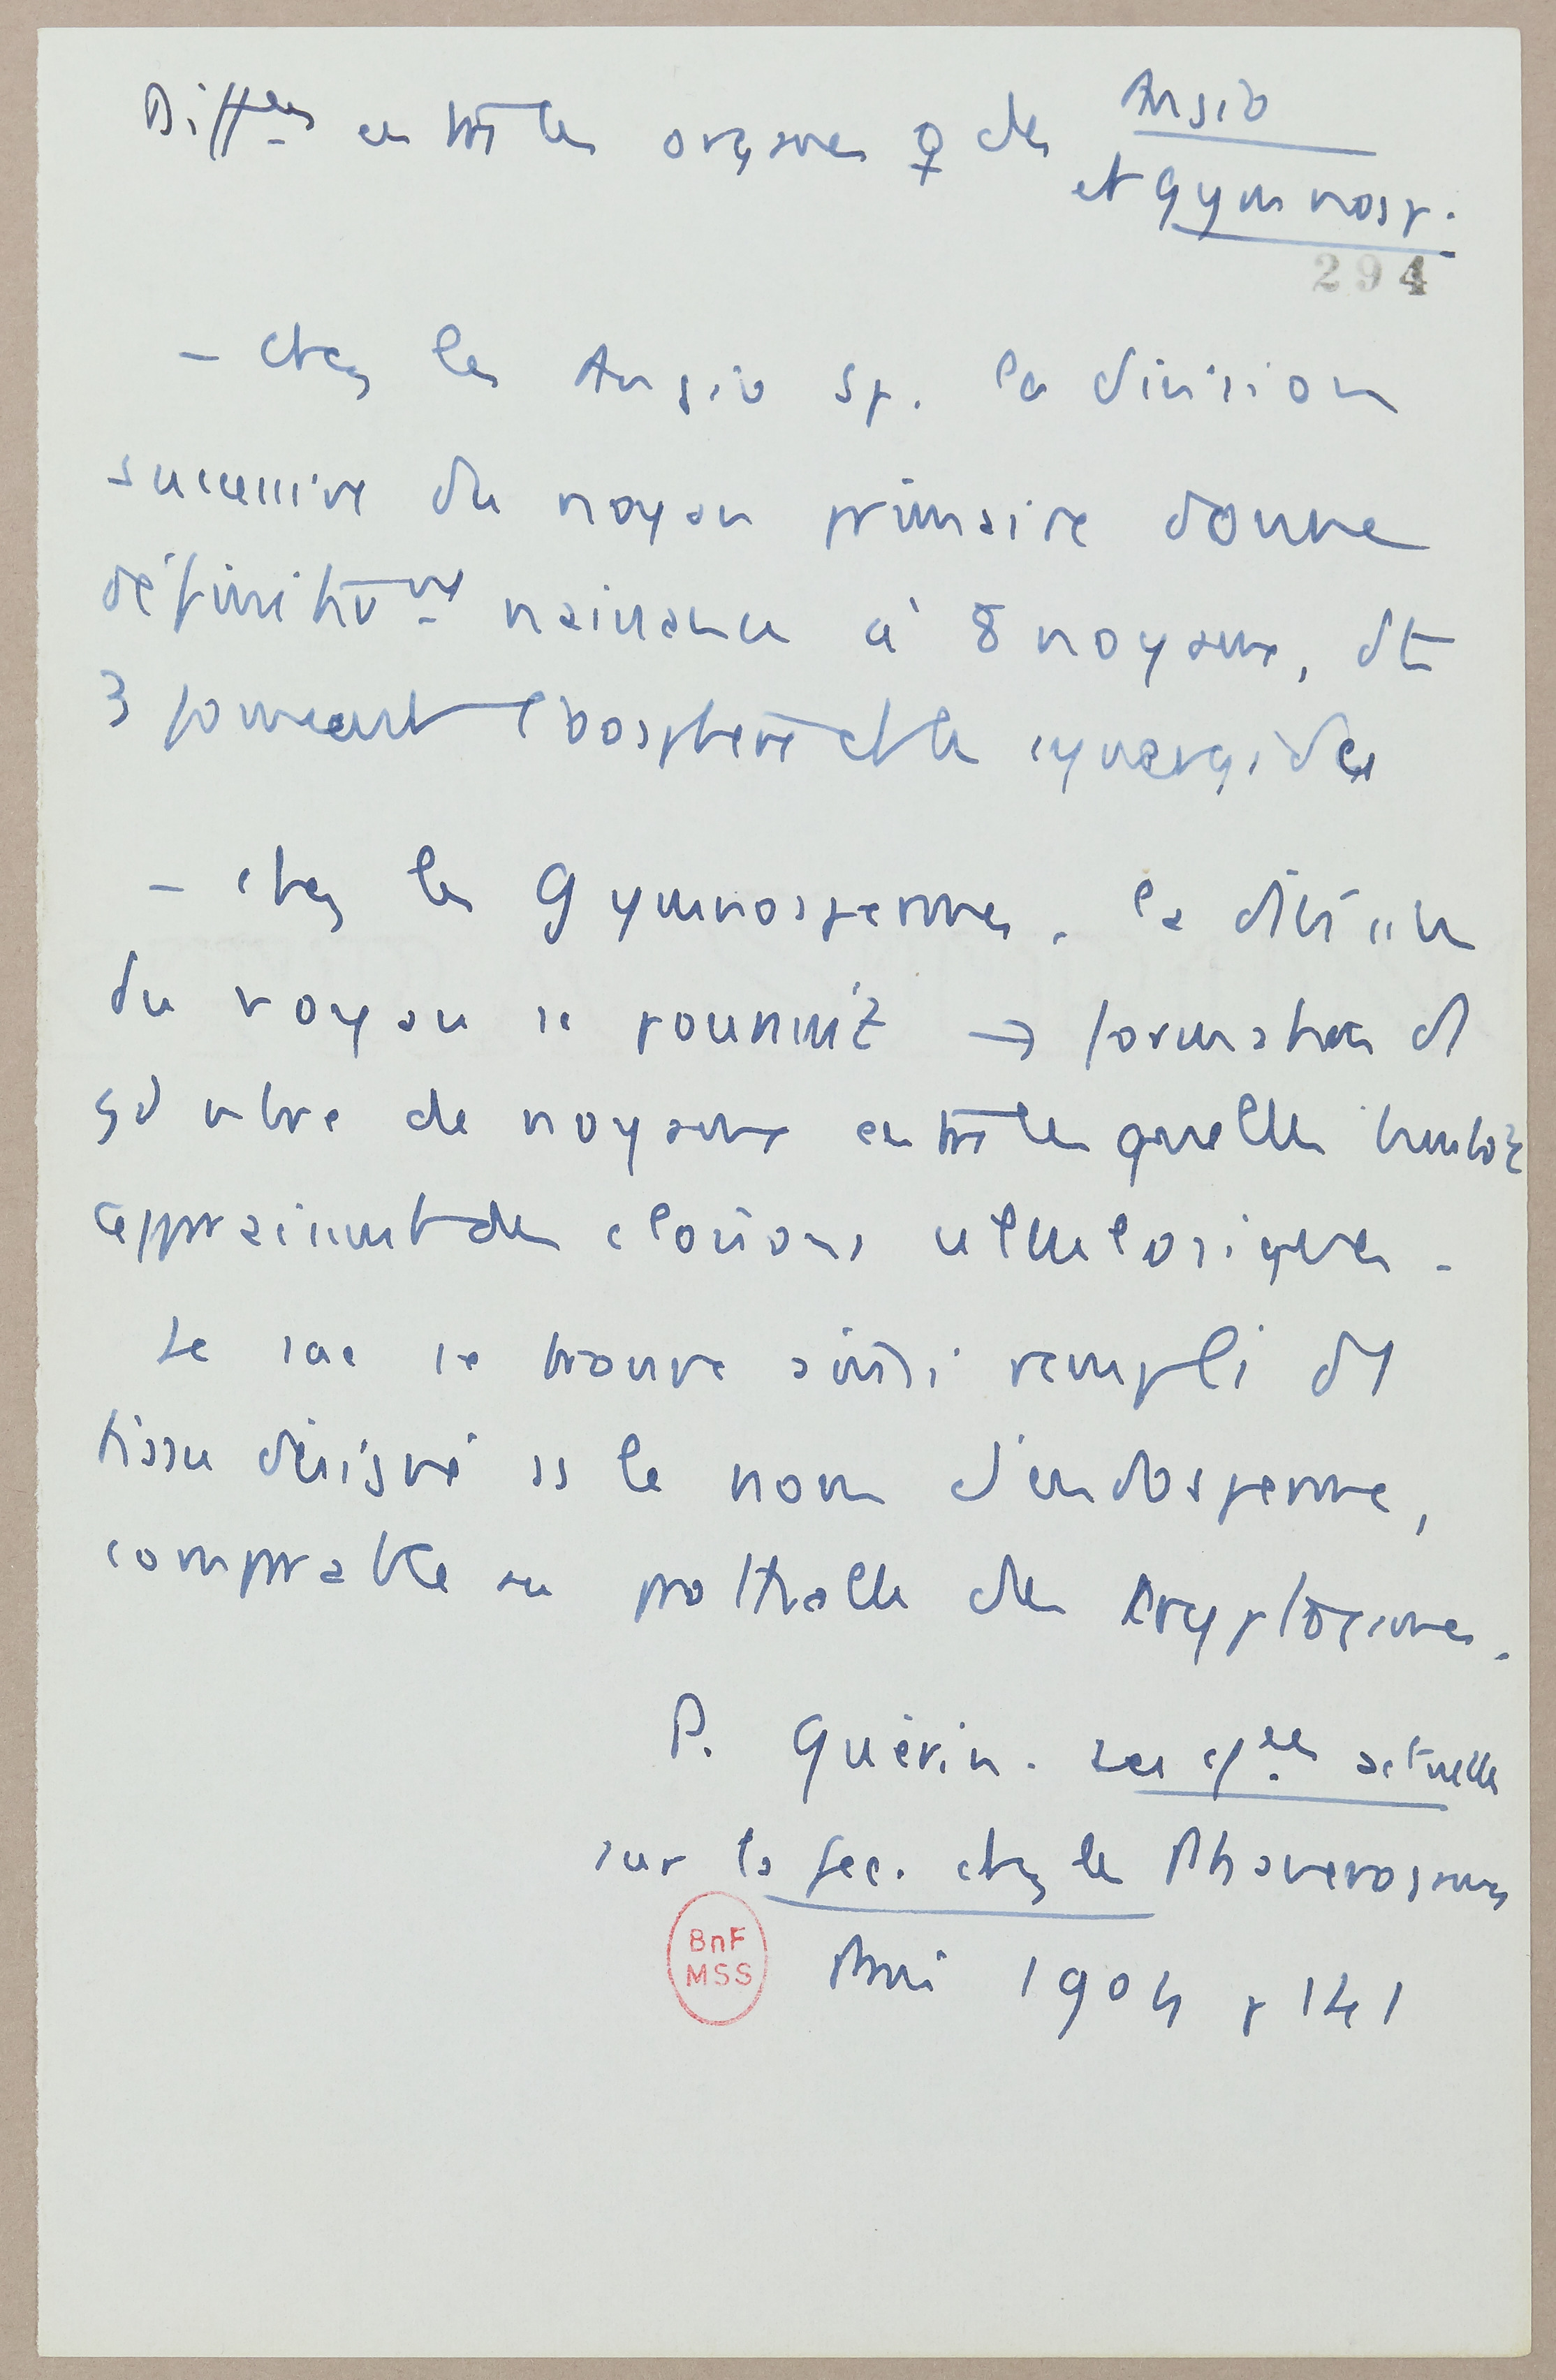 Diff.ces entre les organes ♀ des Angio
et Gymnosp.
294
– chez les Angiosp. la division
successive du noyau primaire donne
définitiv.mt naissance à 8 noyaux, dt
3 forment l'oosphère et les synergides
– chez les Gymnospermes. la division
du noyau se poursuit → formation d
gd nbre de noyaux entre lesquelles
apparaissent des cloisons cellulosiques.
Le sac se trouve ainsi rempli d'1
tissu désigné ss le nom d'endosperme,
comparable au prothalle des Cryptogames.
P. Guérin. Les c/ces actuelles
sur la féc. chez les Phanérogames
BnF
MSS
1904 p 141